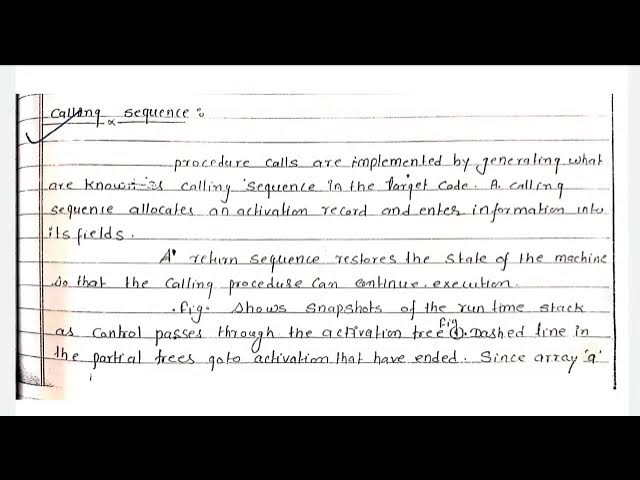 Calling sequence :
procedure calls are implemented by generating what
are known as calling sequence in the target code. A. calling
sequence allocates an activation record and enter information into
its fields.
A return sequence restores the state of the machine
so that the calling procedure can continue execution.
fig. shows snapshots of the run time stack
as control passes through the activation tree fig ①. Dashed line in
the partial trees goto activation that have ended. Since array 'a'